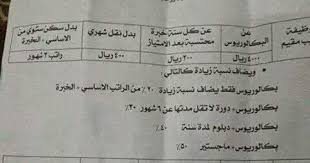 وظيفة
ب مقيم
عن
البكالوريوس
عن كل سنة خبرة
محتسبة بعد الامتياز
بدل نقل شهري
بدل سكن سنوي من
الاساسي + الخبرة
٤٠٠٠ ريال
٢٠٠ ريال
٤٠٠ ريال
راتب ٣ شهور
ويضاف نسبة زيادة كالتالي :
بكالوريوس فقط يضاف نسبة زيادة ٢٠٪ من الراتب الاساسي + الخبرة
بكالوريوس + دورة لا تقل مدتها عن ٦ شهور ٣٠٪
بكالوريوس + دبلوم لمدة سنة ٤٠٪
بكالوريوس + ماجستير ٥٠٪